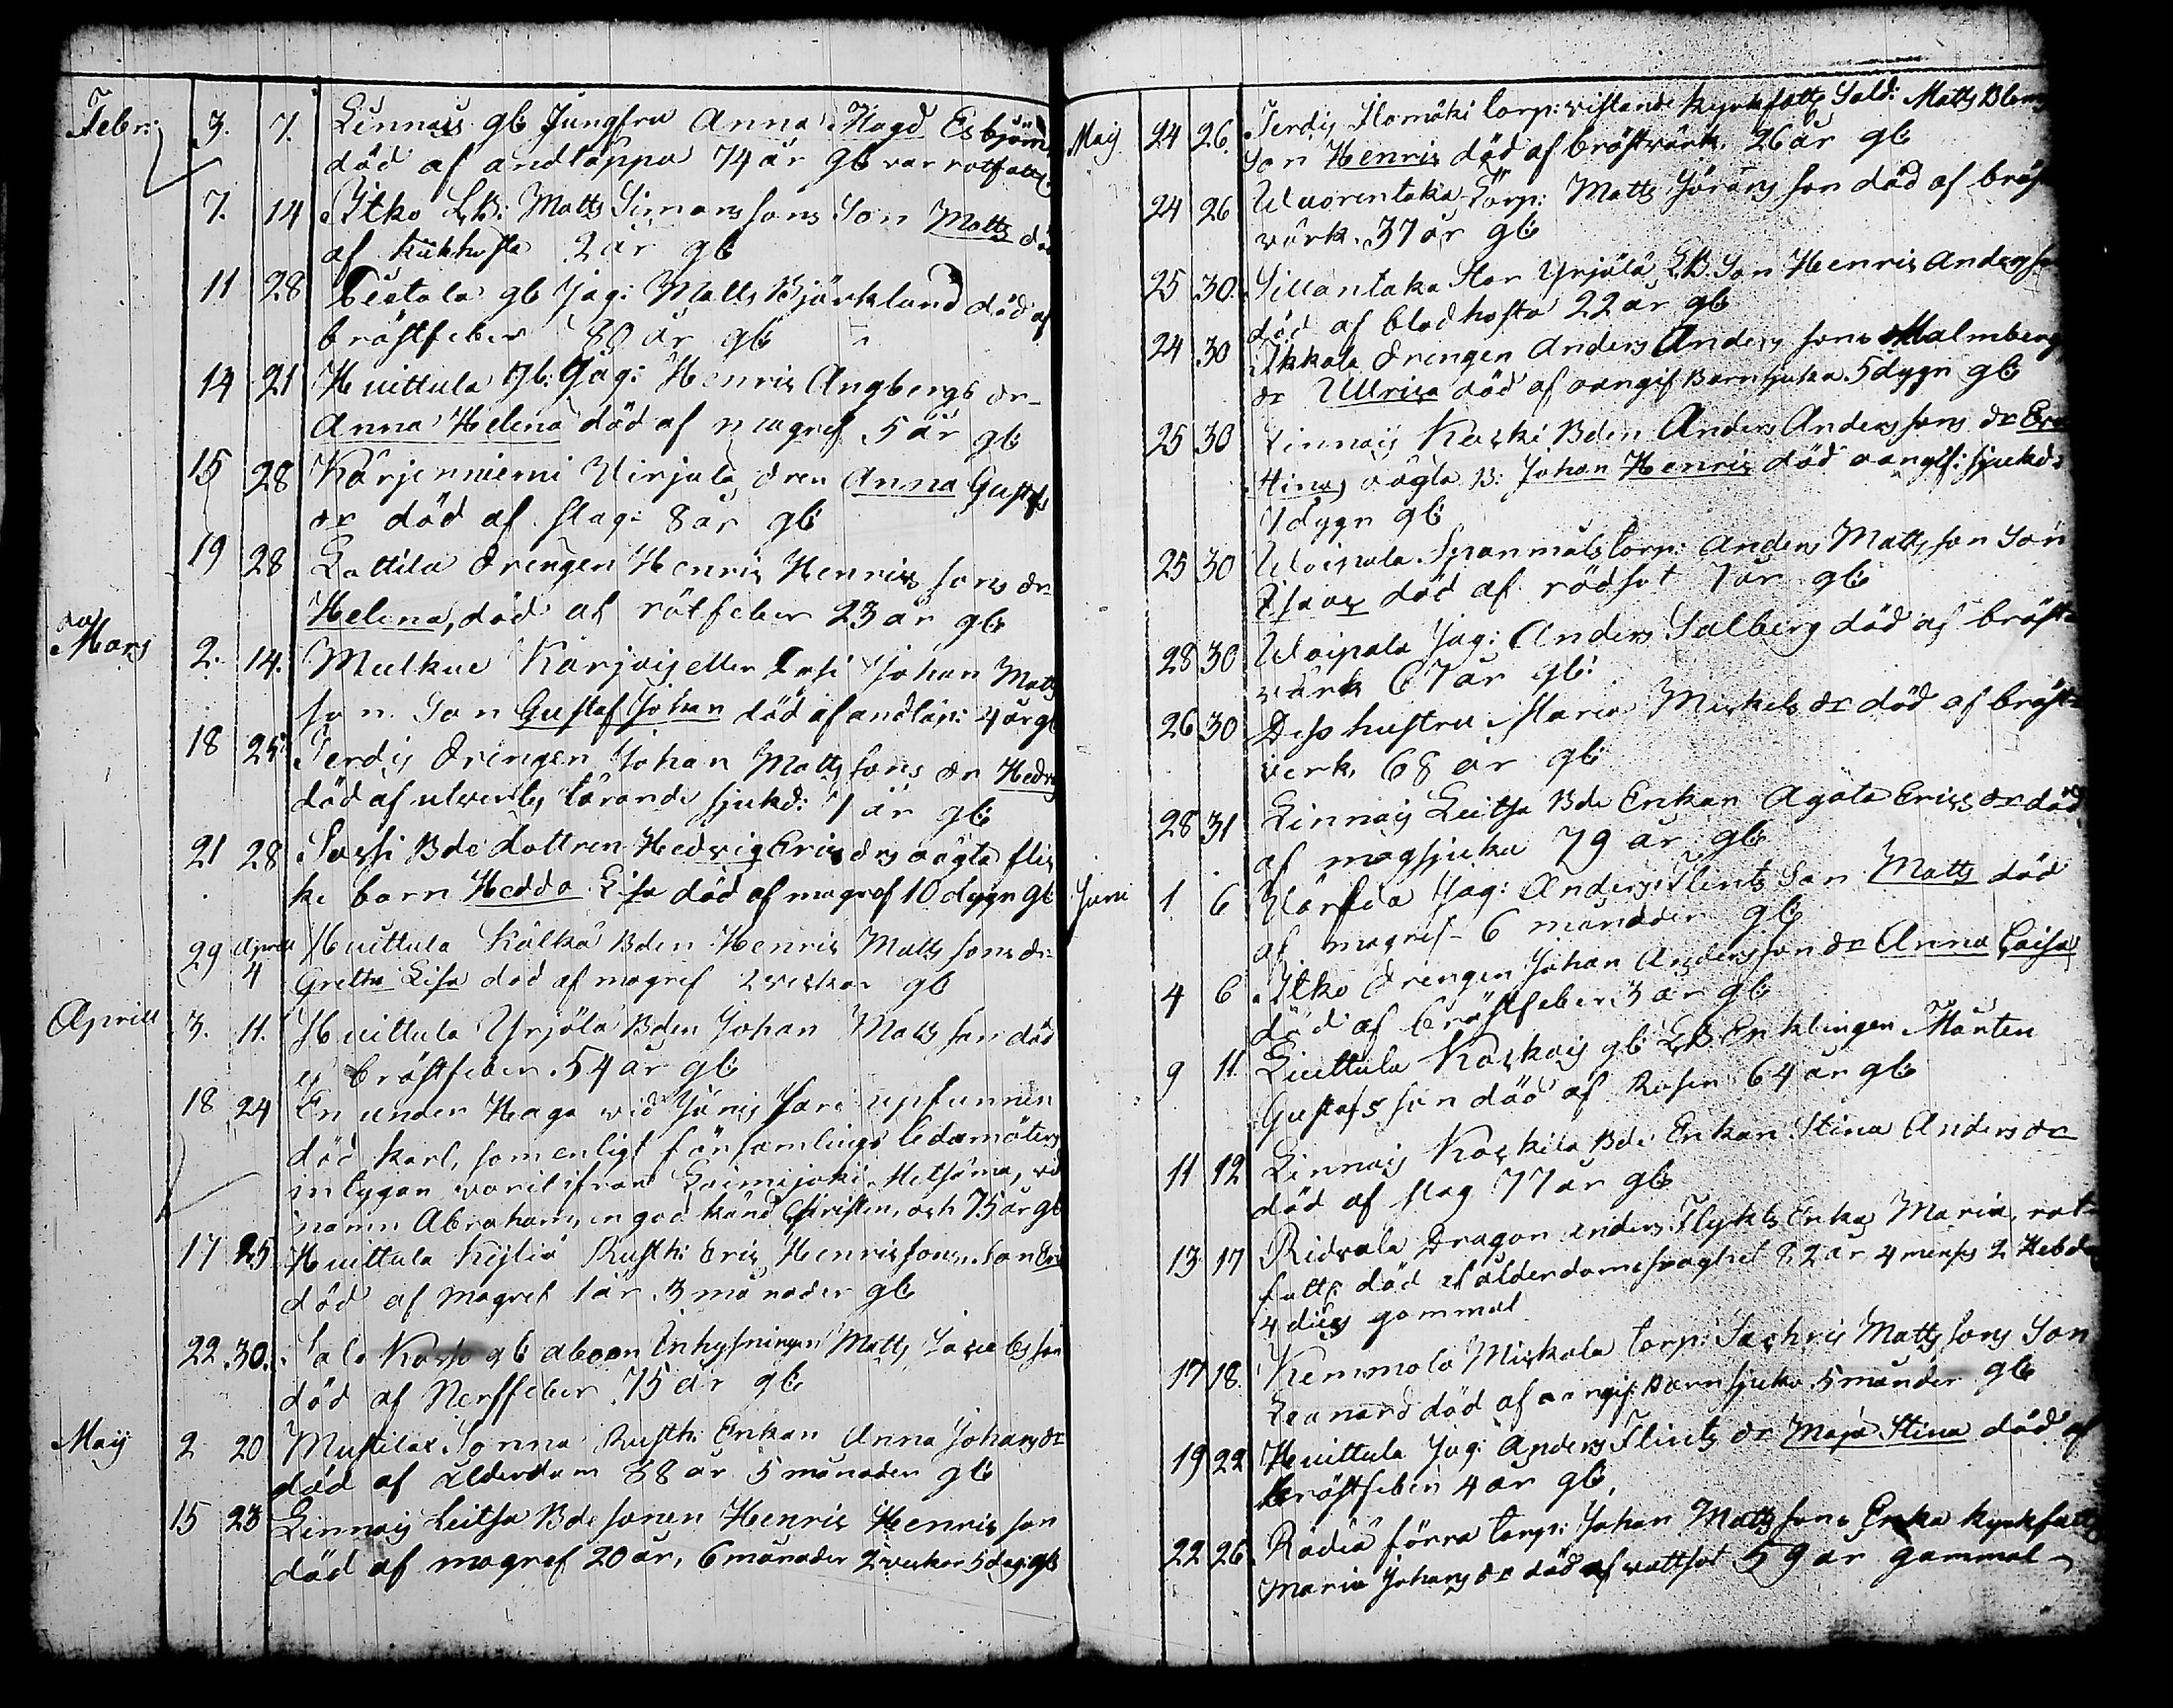 Febr: 3. 7. Linnais gb Jungfru Anna Magd Esbjörn
död af andtäppa 74 år gb var rotfattig
7. 14 Itko LB: Matts Simonssons Son Matts död
af Kikhosta 2 år gb
11 28 gb Jag: Matts Björklund död af
bröstfeber 80 år gb
14 21 Huittula gb. Jäg: Henric Angbergs dr
Anna Helena död af magref 5 år gb
15 28 Kärjenniemi Uirjula dren Anna Gustafs
dr död af slag: 8 år gb
19 28 Lottila drengen Henric Henricssons dr
Helena, död af rötfeber 23 år gb
Mars 2. 14. Mulkue Karjais eller Johan Matts
son Son Gustaf Johan död af andtäp: 4 år gb
18 25 Ferdis drengen Johan Mattssons dr Hedvig
död af utvertes tärande sjukd: 1 år gb
21 28 Sassi Bde dottren Hedvig Erics drs oägta flic
ke barn Hedda Lisa död af magref 10 dygn gb
29 April 4 Huittula Kälkä Bden Henric Mattssons dr
Greta Lisa död af magref 2 veckor gb
Aprill 3. 11. Huittula Yrjölä Bden Johan Matsson död
af bröstfeber 54 år gb
18 24 En under Haga vid Jänis upfunnen
död karl, som enligt församlings ledamöters
intygan varit ifrån Loimijoki Metsämä, vid
namn Abraham, en god känd Christen, och 75 år gb
17 25 Huittula Kylliä Rusth: Eric Henricssons Son Eric
död af magref 1 år 3 månader gb
22 30. Salo gb Inhysningen Matts Jacobsson
död af Nerffeber 75 år gb
Maij 2 20 Mustila Sonna Rusth: Enkan Anna Johans dr
död af ålderdom 88 år 5 månader gb
15 23 Linnais Leitsa Bde sonen Henric Henricsson
död af magref 20 år, 6 månader 2 veckor 5 dag: gb
Maij 24 26. Ferdis Ilomäki torp: vistande kyrkfattig Sold: Matts
Son Henric död af bröstvärk 26 år gb
24 26 Uuorentaka Torp: Matts Göransson död af bröst
värk 37 år gb
25 30. Sillantaka Yrjölä LB. Son Henric Andersson
död af blodhosta 22 år gb
24 30 Ikkala drengen Anders Anderssons Malmberg
dr Ulrica död af oangif Barnsjuka 5 dygn gb
25 30 Linnais Koski Bden Anders Anderssons dr
Stinas oägta B: Johan Henric död oangif: sjukd:
7 dygn gb
25 30 Uoipala Spanmåls torp: Anders Mattsson Son
Isaac död af rödsot 7 år gb
28 30 Uoipala Jäg: Anders Salberg död af bröst
värk 67 år gb:
26 30 Dess hustru Maria Mickels dr död af bröst
verk 68 år gb
28 31 Linnais Leitsa Bde Enkan Agata Erics dr död
af magsjuka 79 år gb
Juni 1 6 Jäg: Anders Flints Son Matts död
af magref 6 månader gb
4 6 Itko drengen Johan Andersson dr Anna Caisa
död af bröstfeber 3 år gb
9 11. Huittula Koskois gb LB Enklingen Mårten
Gustafsson död af Rosen 64 år gb
11 12 Linnais Koskila Bde Enkan Stina Anders dr
död af slag 77 år gb
13 17 Ridvala Dragon Anders Flykts Enka Maria, rot
fattig död af ålderdomssvaghet 82 år 4 mens 2 Hebd
4 dies gammal
17 18. Kemmola Mickola torp: Zachris Mattssons Son
Leonard död af oangif: Barnsjuka 5 månader gb
19 22 Huittula Jäg: Anders Flints dr Maja Stina död af
bröstfeber 4 år gb,
22 26 förra torp: Johan Mattssons Enka kyrkfattig
Maria Johans dr död af vattsot 59 år gammal